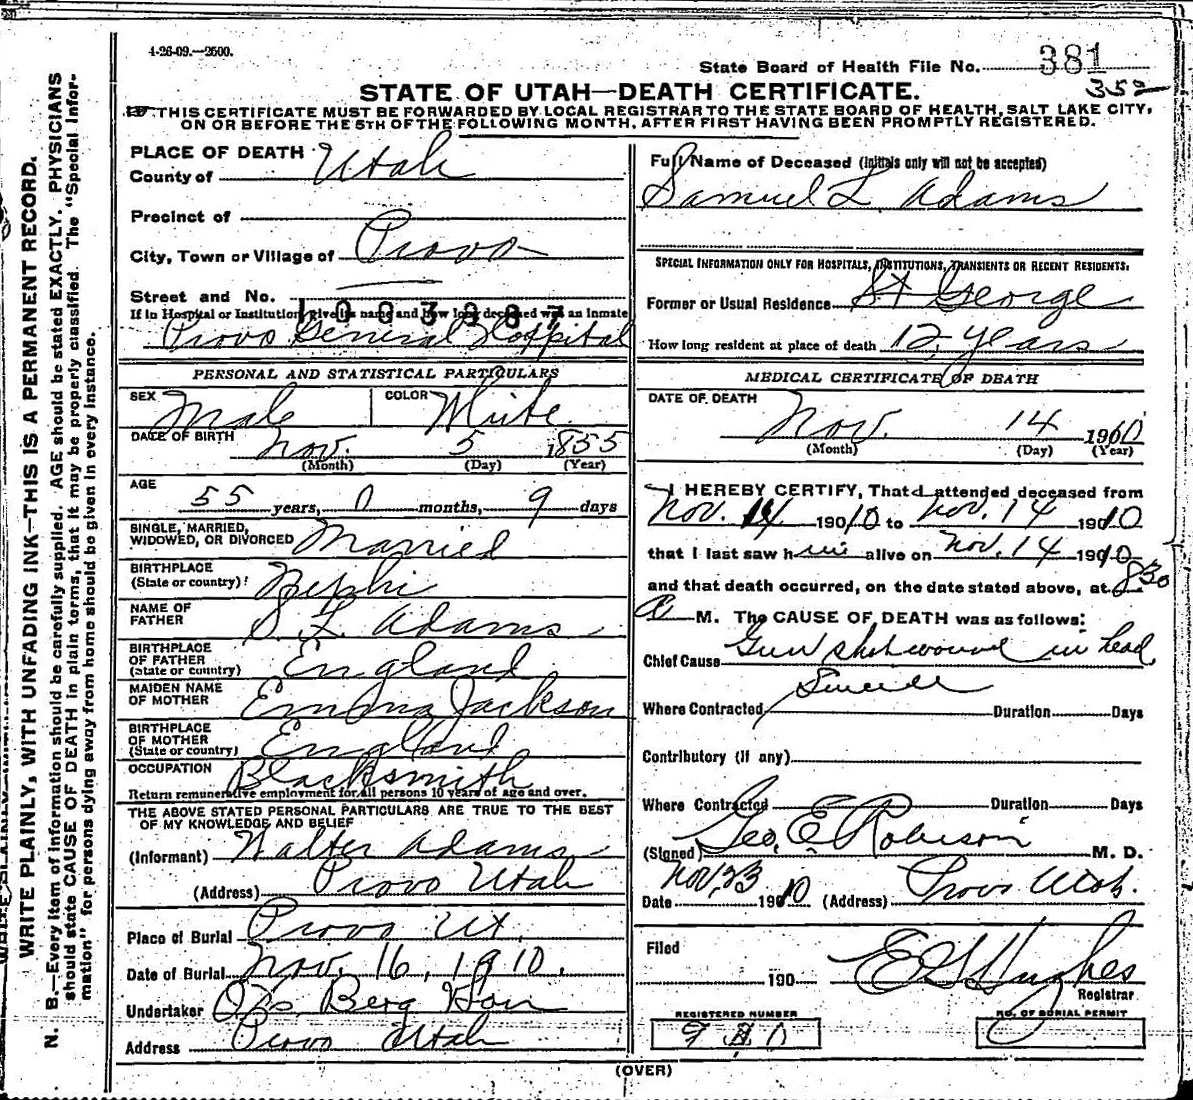 4-26-09.—2500.
State Board of Health File No. 381
352
STATE OF UTAH—DEATH CERTIFICATE.
THIS CERTIFICATE MUST BE FORWARDED BY LOCAL REGISTRAR TO THE STATE BOARD OF HEALTH, SALT LAKE CITY,
ON OR BEFORE THE 5TH OF THE FOLLOWING MONTH, AFTER FIRST HAVING BEEN PROMPTLY REGISTERED.
PLACE OF DEATH
County of Utah
Precinct of
City, Town or Village of Provo
Street and No.
If in Hospital or Institution give its name and how long deceased was an inmate
Provo General Hospital
PERSONAL AND STATISTICAL PARTICULARS
SEX Male COLOR White
DATE OF BIRTH Nov. 5 1855
(Month) (Day) (Year)
AGE
55 years, 0 months, 9 days
SINGLE, MARRIED,
WIDOWED, OR DIVORCED Married
BIRTHPLACE
(State or country) Nephi
NAME OF
FATHER S. L. Adams
BIRTHPLACE
OF FATHER
(State or country) England
MAIDEN NAME
OF MOTHER Emma Jackson
BIRTHPLACE
OF MOTHER
(State or country) England
OCCUPATION Blacksmith
Return remunerative employment for all persons 10 years of age and over.
THE ABOVE STATED PERSONAL PARTICULARS ARE TRUE TO THE BEST
OF MY KNOWLEDGE AND BELIEF
(Informant) Walter Adams
(Address) Provo Utah
Place of Burial Provo Ut.
Date of Burial Nov. 16, 1910.
Undertaker Berg
Address Provo Utah
Full Name of Deceased (Initials only will not be accepted)
Samuel L Adams
SPECIAL INFORMATION ONLY FOR HOSPITALS, INSTITUTIONS, TRANSIENTS OR RECENT RESIDENTS.
Former or Usual Residence St George
How long resident at place of death 12 years
MEDICAL CERTIFICATE OF DEATH
DATE OF DEATH
Nov. 14 1910
(Month) (Day) (Year)
I HEREBY CERTIFY, That I attended deceased from
Nov. 14 1910 to Nov. 14 1910
that I last saw him alive on Nov. 14 1910
and that death occurred, on the date stated above, at 830
A M. The CAUSE OF DEATH was as follows:
Chief Cause Gun shot wound in head
Suicide
Where Contracted Duration Days
Contributory (if any)
Where Contracted Duration Days
(Signed) Geo. E. Robison M. D.
Date Nov. 23 1910 (Address) Provo Utah.
Filed
190 E G Hughes
Registrar
REGISTERED NUMBER NO. OF BURIAL PERMIT
(OVER)
WRITE PLAINLY, WITH UNFADING INK—THIS IS A PERMANENT RECORD.
N. B.—Every item of information should be carefully supplied. AGE should be stated EXACTLY. PHYSICIANS
should state CAUSE OF DEATH in plain terms, that it may be properly classified. The "Special Infor-
mation" for persons dying away from home should be given in every instance.